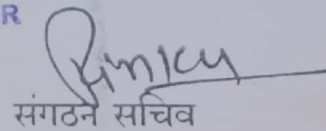 R
संगठन सचिव